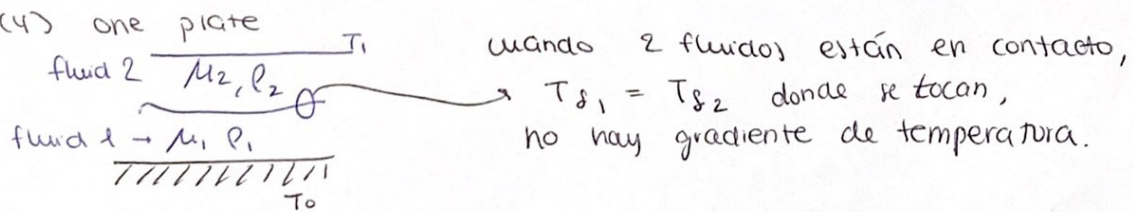 (4) one plate
T₁
fluid 2 μ₂, ρ₂
fluid 1 → μ₁ ρ₁
T₀
cuando 2 fluidos están en contacto,
Tf₁ = Tf₂ donde se tocan,
no hay gradiente de temperatura.